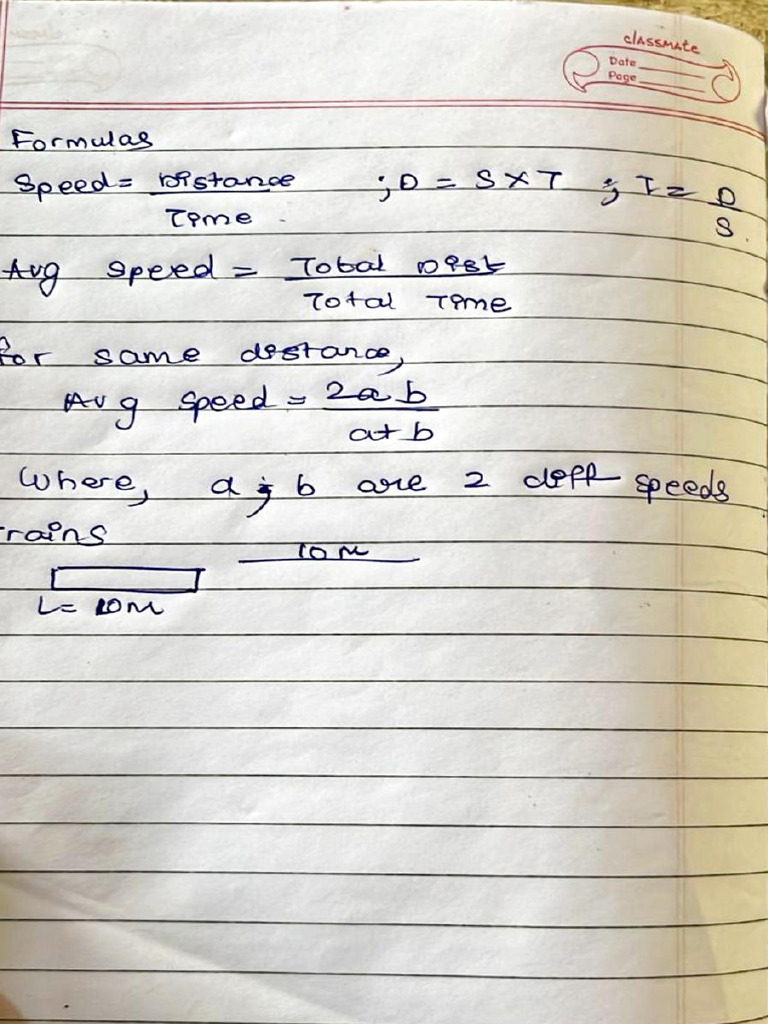 classmate
Date
Page
Formulas
Speed = Distance / Time ; D = S × T ; T = D / S.
Avg speed = Total Dist / Total Time
for same distance,
Avg speed = 2ab / a+b
Where, a ; b are 2 diff speeds
rains
10m
L = 10m